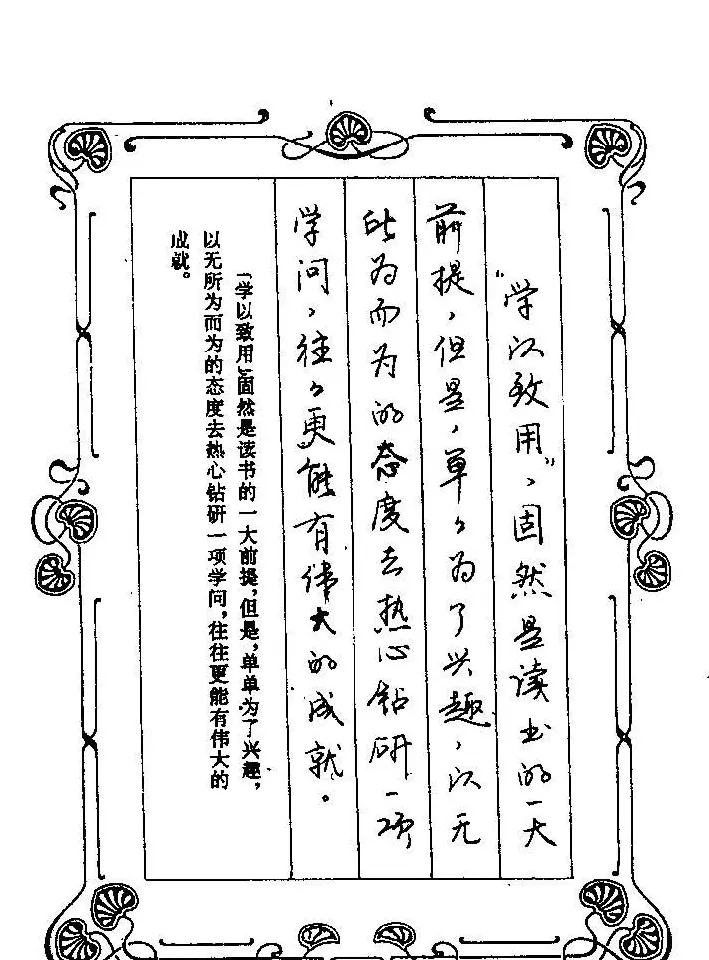 “学以致用”，固然是读书的一大
前提，但是，单々为了兴趣，以无
所为而为的态度去热心钻研一项
学问，往々更能有伟大的成就。
「学以致用」固然是读书的一大前提，但是，单单为了兴趣，
以无所为而为的态度去热心钻研一项学问，往往更能有伟大的
成就。